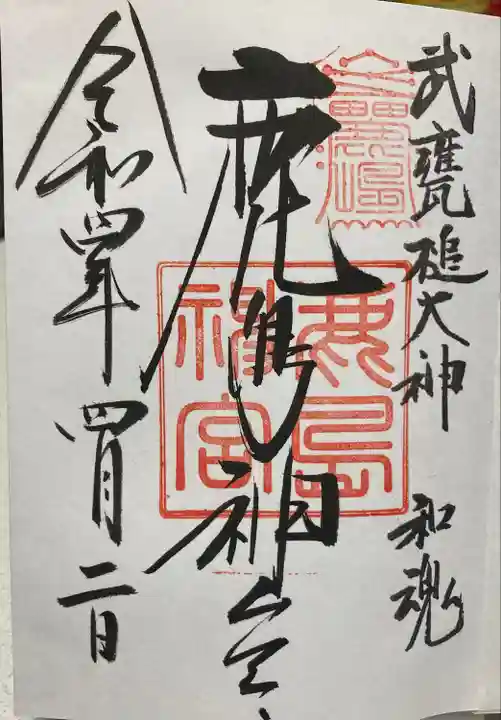 武甕槌大神 和魂
鹿島神宮
令和四年 四月 二日